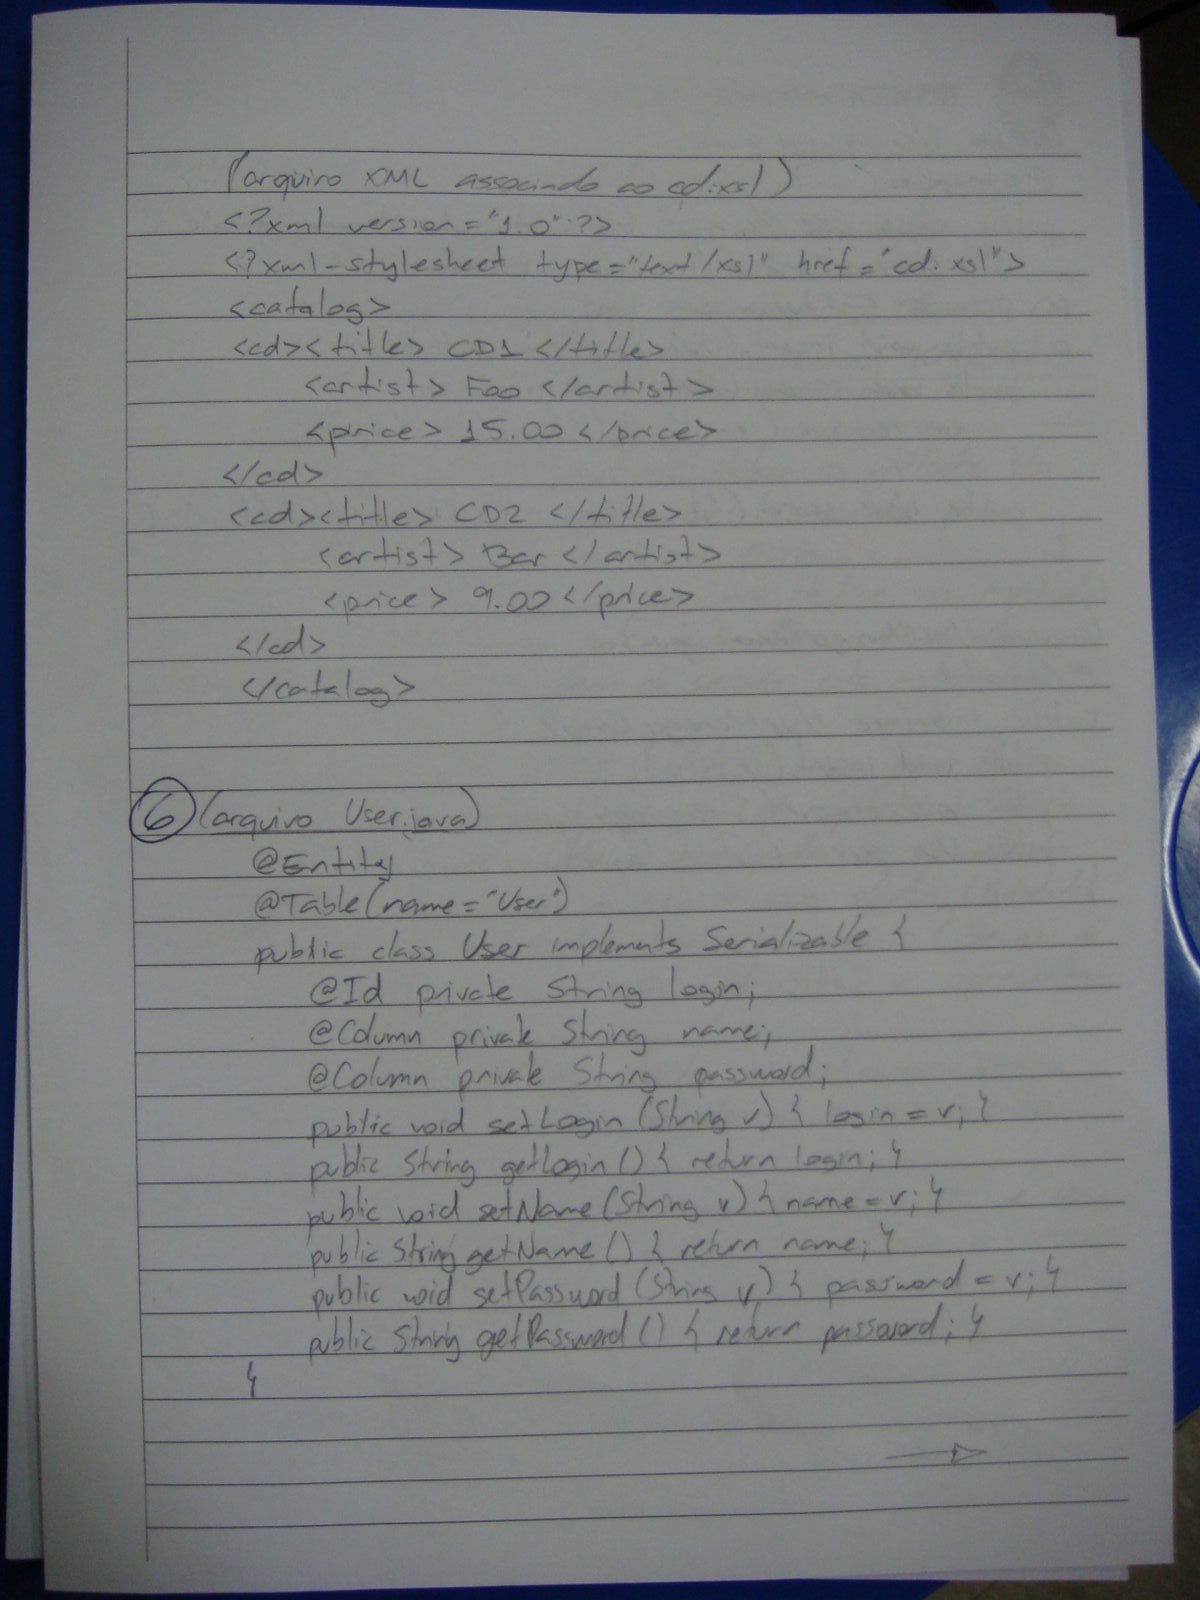 (arquivo XML associado ao cd.xsl)
<?xml version="1.0"?>
<?xml-stylesheet type="text/xsl" href="cd.xsl">
<catalog>
<cd><title> CD1 </title>
<artist> Foo </artist>
<price> 15.00 </price>
</cd>
<cd><title> CD2 </title>
<artist> Bar </artist>
<price> 9.00 </price>
</cd>
</catalog>
6 (arquivo User.java)
@Entity
@Table(name="User")
public class User implements Serializable {
@Id private String login;
@Column private String name;
@Column private String password;
public void setLogin (String v) { login = v; }
public String getLogin () { return login; }
public void setName (String v) { name = v; }
public String getName () { return name; }
public void setPassword (String v) { password = v; }
public String getPassword () { return password; }
}